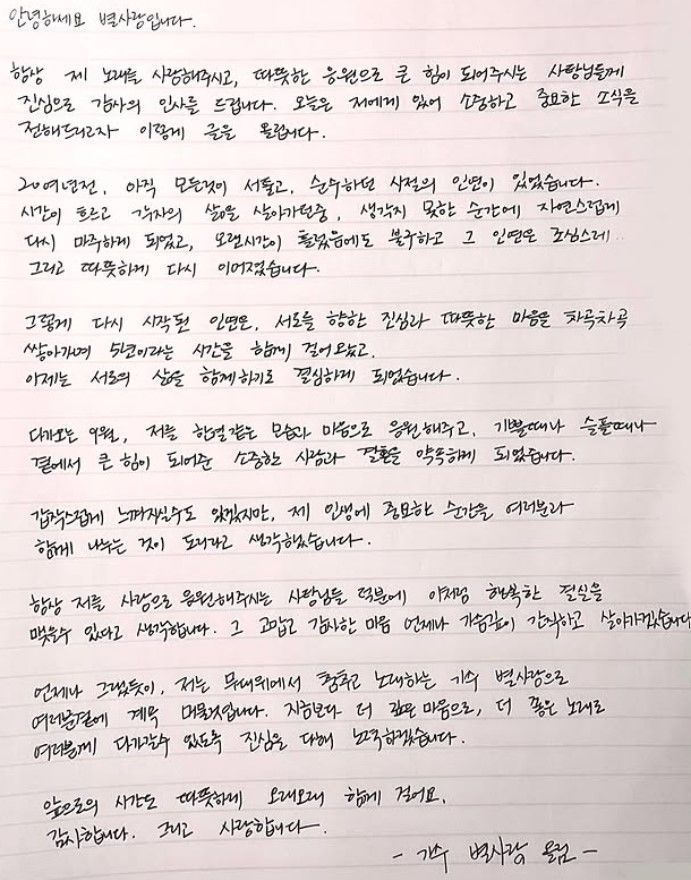 안녕하세요 별사랑입니다.
항상 제 노래를 사랑해주시고, 따뜻한 응원으로 큰 힘이 되어주시는 사랑님들께
진심으로 감사의 인사를 드립니다. 오늘은 저에게 있어 소중하고 중요한 소식을
전해드리고자 이렇게 글을 올립니다.
20여년전, 아직 모든것이 서툴고, 순수하던 시절의 인연이 있었습니다.
시간이 흐르고 각자의 삶을 살아가던중, 생각지 못한 순간에 자연스럽게
다시 마주하게 되었고, 오랜시간이 흘렀음에도 불구하고 그 인연은 조심스레..
그리고 따뜻하게 다시 이어졌습니다.
그렇게 다시 시작된 인연은, 서로를 향한 진심과 따뜻한 마음을 차곡차곡
쌓아가며 5년이라는 시간을 함께 걸어왔고,
이제는 서로의 삶을 함께하기로 결심하게 되었습니다.
다가오는 9월, 저를 한결같은 모습과 마음으로 응원해주고, 기쁠때나 슬플때나
곁에서 큰 힘이 되어준 소중한 사람과 결혼을 약속하게 되었습니다.
갑작스럽게 느껴지실수도 있겠지만, 제 인생에 중요한 순간을 여러분과
함께 나누는 것이 도리라고 생각했습니다.
항상 저를 사랑으로 응원해주시는 사랑님들 덕분에 이처럼 행복한 결실을
맺을수 있다고 생각합니다. 그 고맙고 감사한 마음 언제나 가슴깊이 간직하고 살아가겠습니다
언제나 그랬듯이, 저는 무대위에서 춤추고 노래하는 가수 별사랑으로
여러분곁에 계속 머물것입니다. 지금보다 더 깊은 마음으로, 더 좋은 노래로
여러분께 다가갈수 있도록 진심을 다해 노력하겠습니다.
앞으로의 시간도 따뜻하게 오래오래 함께 걸어요.
감사합니다. 그리고 사랑합니다.
- 가수 별사랑 올림 -